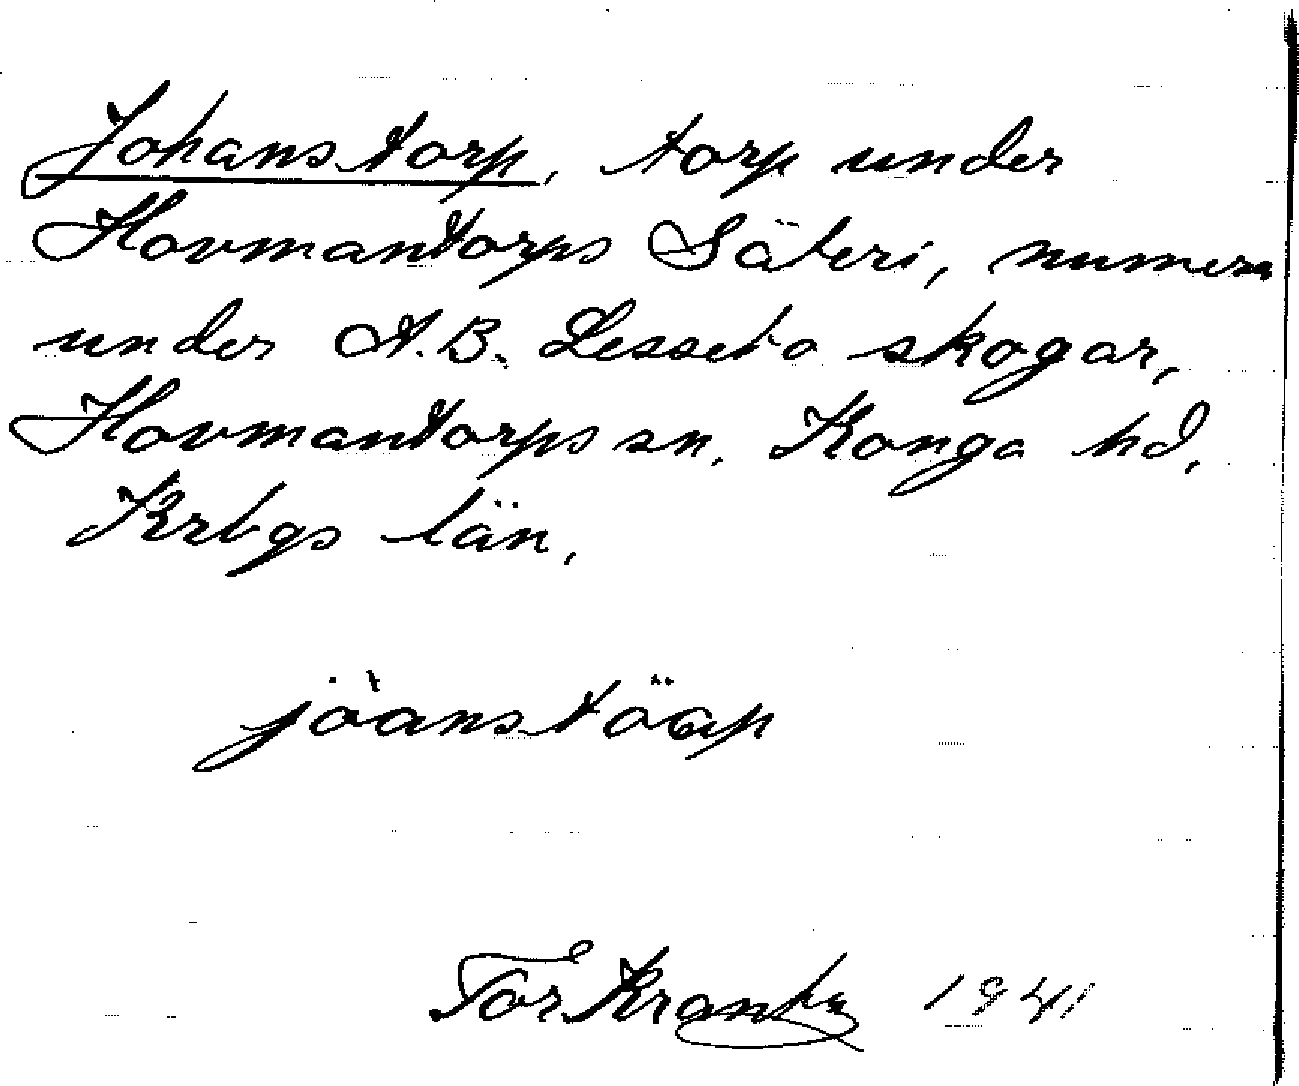 Johanstorp, torp under
Hovmantorps Säteri, numera
under A.B. Lessebo skogar,
Hovmantorps sn. Konga hd,
Krbgs län,
jòanstöap
Tor Krantz 1941